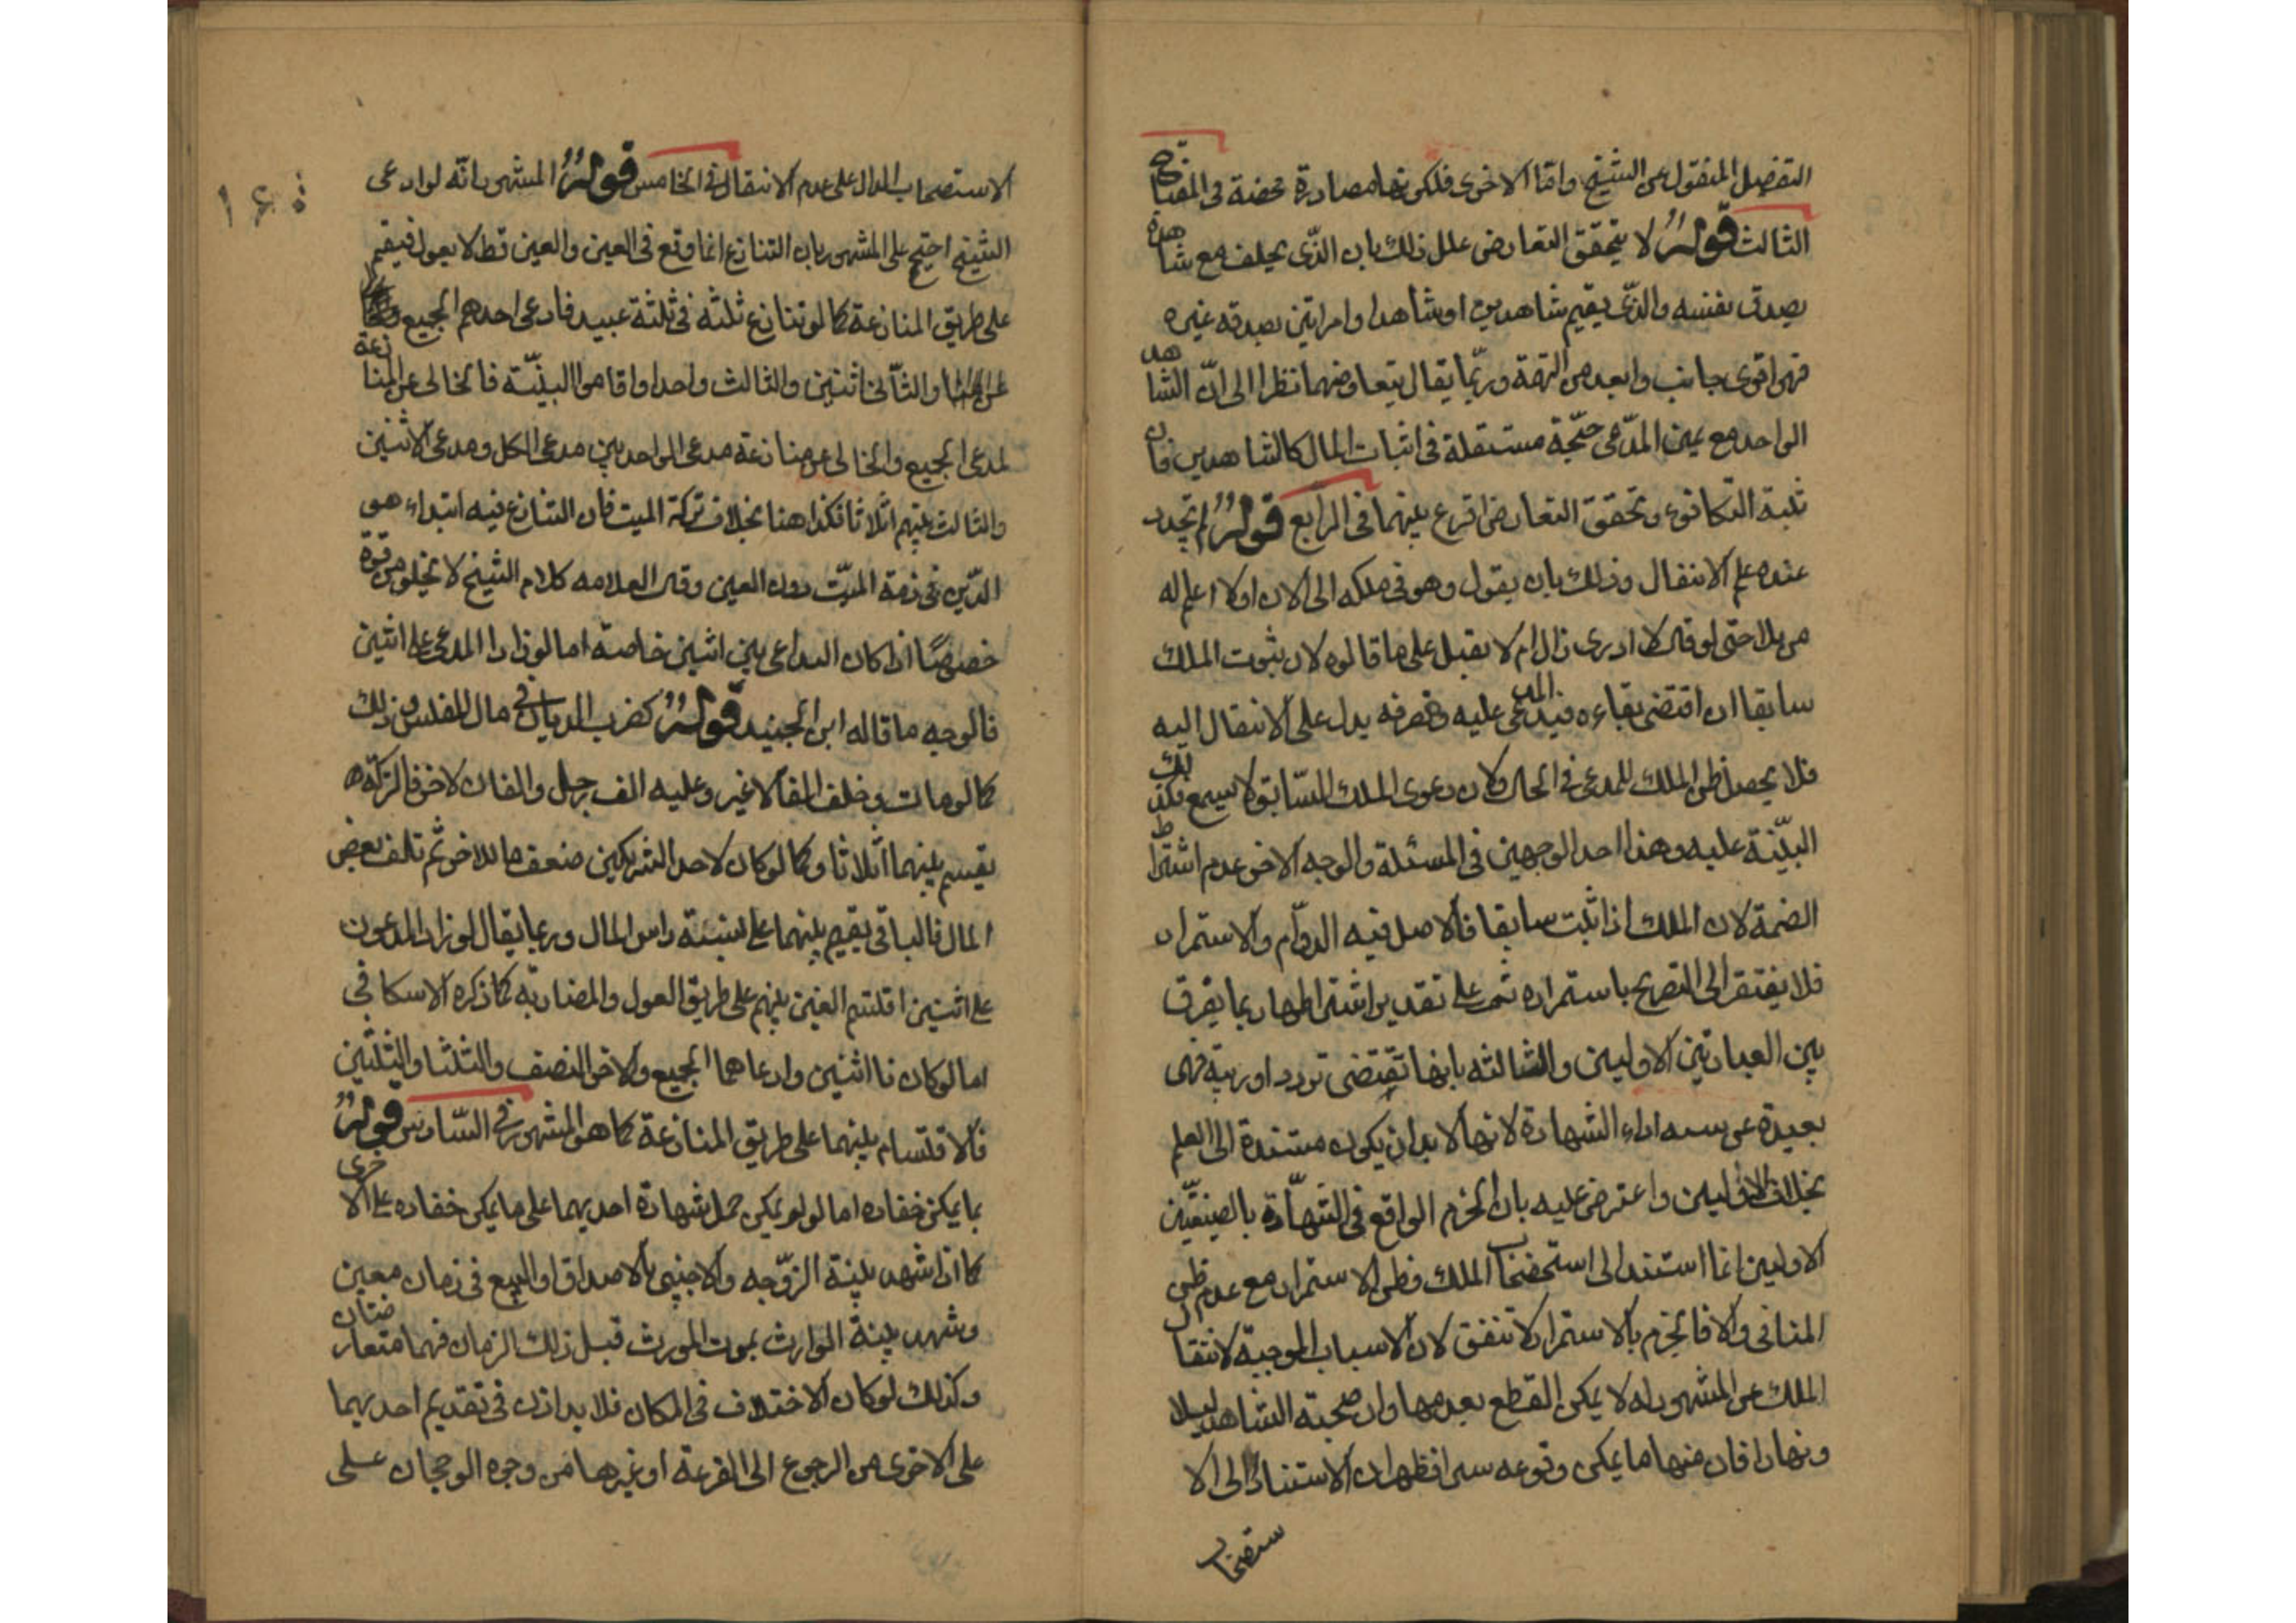 التفضيل المنقول عن الشيخ واما الاخرى فلكونها مصادرة محضة فى المفتاح
الثالث قوله لا يتحقق التعارض علل ذلك بان الذى يحلف مع شاهده
يصدق نفسه والذى يقيم شاهدين او شاهدا وامراتين يصدقه غيره
فهى اقوى جانب وابعد من التهمة وربّما يقال بتعارضهما نظرا الى انّ الشاهد
الواحد مع يمين المدّعى حجّة مستقلة فى اثبات المال كالشاهدين فان
ثبة التكافوء وتحقق التعارض اقرع بينهما فى الرابع قوله لم يتجدد
عنده علم الانتقال وذلك بان يقول وهو فى ملكه الى الان او لا اعلم له
مزيلا حتى لو قال لا ادرى زال ام لا يقبل على ما قالوه لان ثبوت الملك
سابقا ان اقتضى بقاءه فيد المدعى عليه وتصرفه يدل على الانتقال اليه
فلا يحصل ظن الملك للمدعى فى الحال ولان دعوى الملك السّابق لا يسمع فكذلك
البيّنة عليه وهذا احد الوجهين فى المسئلة والوجه الاخر عدم اشتراط
الضمة لان الملك اذا ثبت سابقا فالاصل فيه الدوّام والاستمرار
فلا يفتقر الى التصريح باستمراره ثم على تقدير اشتراطها ربما يفرق
بين العبارتين الاوليين والثالثه بانها تقتضى تردد او ريبة فهى
بعيدة عن اداء الشهادة لانها لا بد ان يكون مستندة الى العلم
بخلاف الاوليين واعترض عليه بان الجزم الواقع فى الشّهادة بالصيغتين
الاوليين انما استند الى استصحاب الملك وظن الاستمرار مع عدم ظن
المنافى والا فالجزم بالاستمرار لا تتفق لان الاسباب الموجبة لانتقال
الملك عن المشهود له لا يمكن القطع بعدمها وان صحبته الشاهد ليلا
ونهارا فان منها ما يمكن وقوعه سرا فظهر ان الاستناد الى الا
ستصحاب
١٤٠
الاستصحاب الدال على عدم الانتقال فى الخامس قوله المشهور انّه لو ادعى
الشيخ احتج على المشهور بان التنازع انما وقع فى العين والعين قط لا يعول فيقسم
على طريق المنازعة كما لو تنازع ثلثه فى ثلثة عبيد فادعى احدهم الجميع
والثانى اثنين والثالث واحدا واقاموا البيّنة فالخالى عن المنازعة
لمدعى الجميع والخالى عن منازعة مدعى الواحد بين مدعى الكل ومدعى الاثنين
والثالث بينهم اثلاثا فكذا هنا بخلاف تركة الميت فان التنازع فيه ابتداء هو
الدّين فى ذمة الميّت دون العين وقال العلامه كلام الشيخ لا يخلو من قوة
خصوصًا اذا كان التداعى بين اثنين خاصة اما لو زاد المدعى على اثنين
فالوجه ما قاله ابن الجنيد قوله كضرب الديان فى مال المفلس وذلك
كما لو مات وخلف الفا لا غير وعليه الف لرجل والفان لاخر فالتركة
يقسم بينهما اثلاثا وكما لو كان لاحد الشريكين ضعف ما للاخر ثم تلف بعض
المال فالباقى يقسم بينهما على نسبة راس المال وربما يقال لو زاد المدعون
على اثنين اقتسم العين بينهم على طريق العول والمضاربة كما ذكره الاسكافى
اما لو كانا اثنين وادعاهما الجميع والاخر النصف والثلث او الثلثين
فالاقتسام بينهما على طريق المنازعة كما هو المشهور فى السّادس قوله
بما يمكن خفاده اما لو لم يمكن حمل شهادة احديهما على ما يمكن خفاده على الاخرى
كما اذا شهد بينة الزّوجه والاجنبى بالاصداق او البيع فى زمان معين
وشهد بينة الوارث بموت المورث قبل ذلك الزمان فهما متعارضتان
وكذلك لو كان الاختلاف فى المكان فلا بد اذن فى تقديم احديهما
على الاخرى من الرجوع الى القرعة او غيرها من وجوه الرجحان على